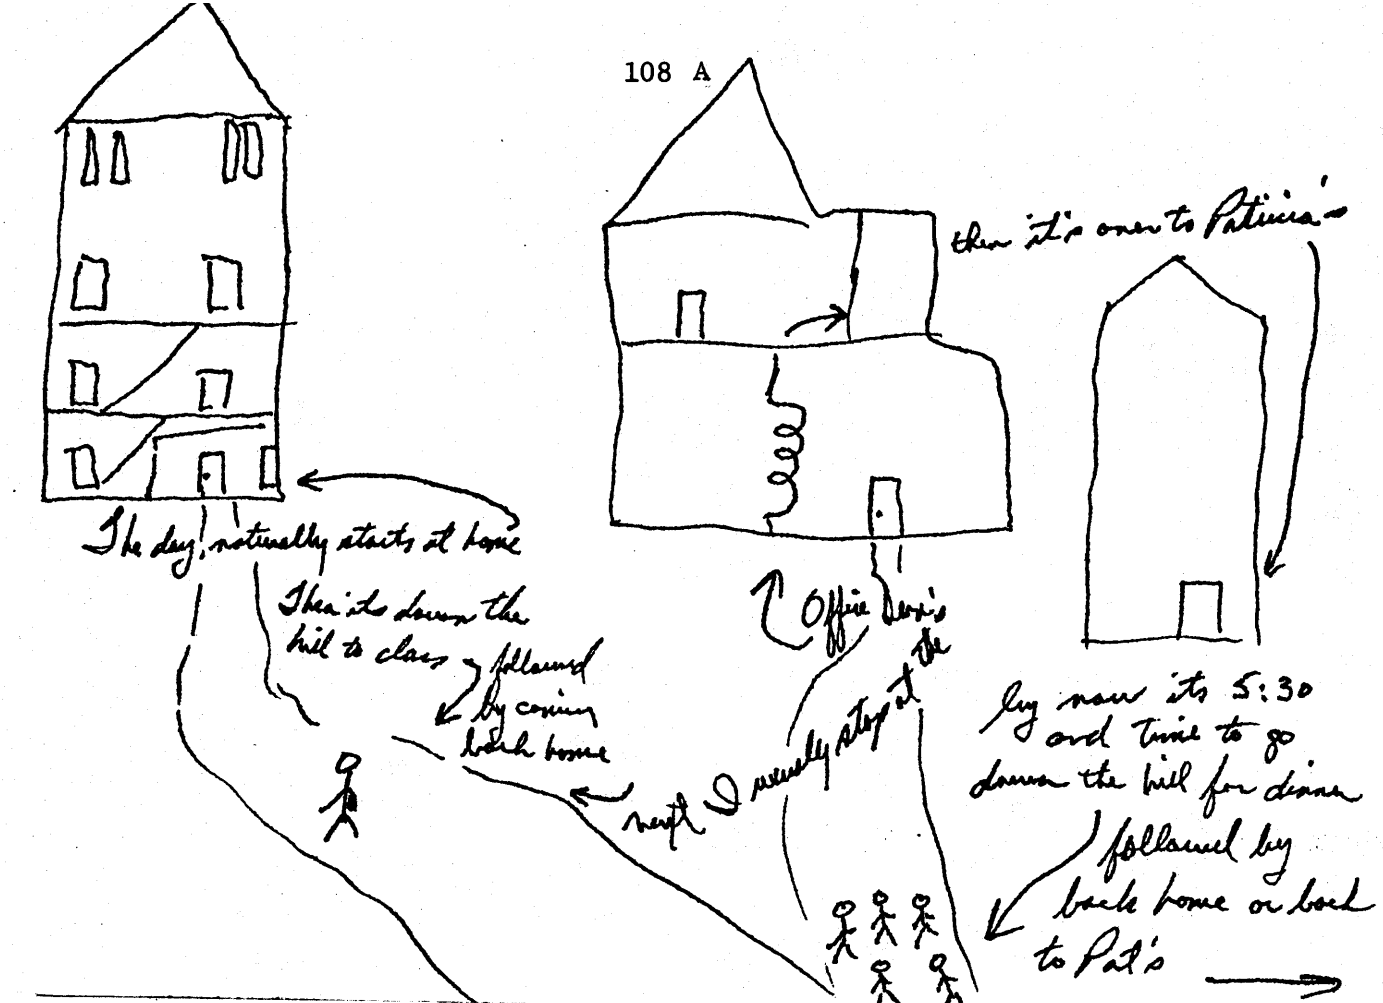 108 A
The day, naturally starts at home
Then its down the
hill to class
followed
by coming
back home
next I usually stop at the
Office
then it's over to Patricia's
by now its 5:30
and time to go
down the hill for dinner
followed by
back home or back
to Pat's